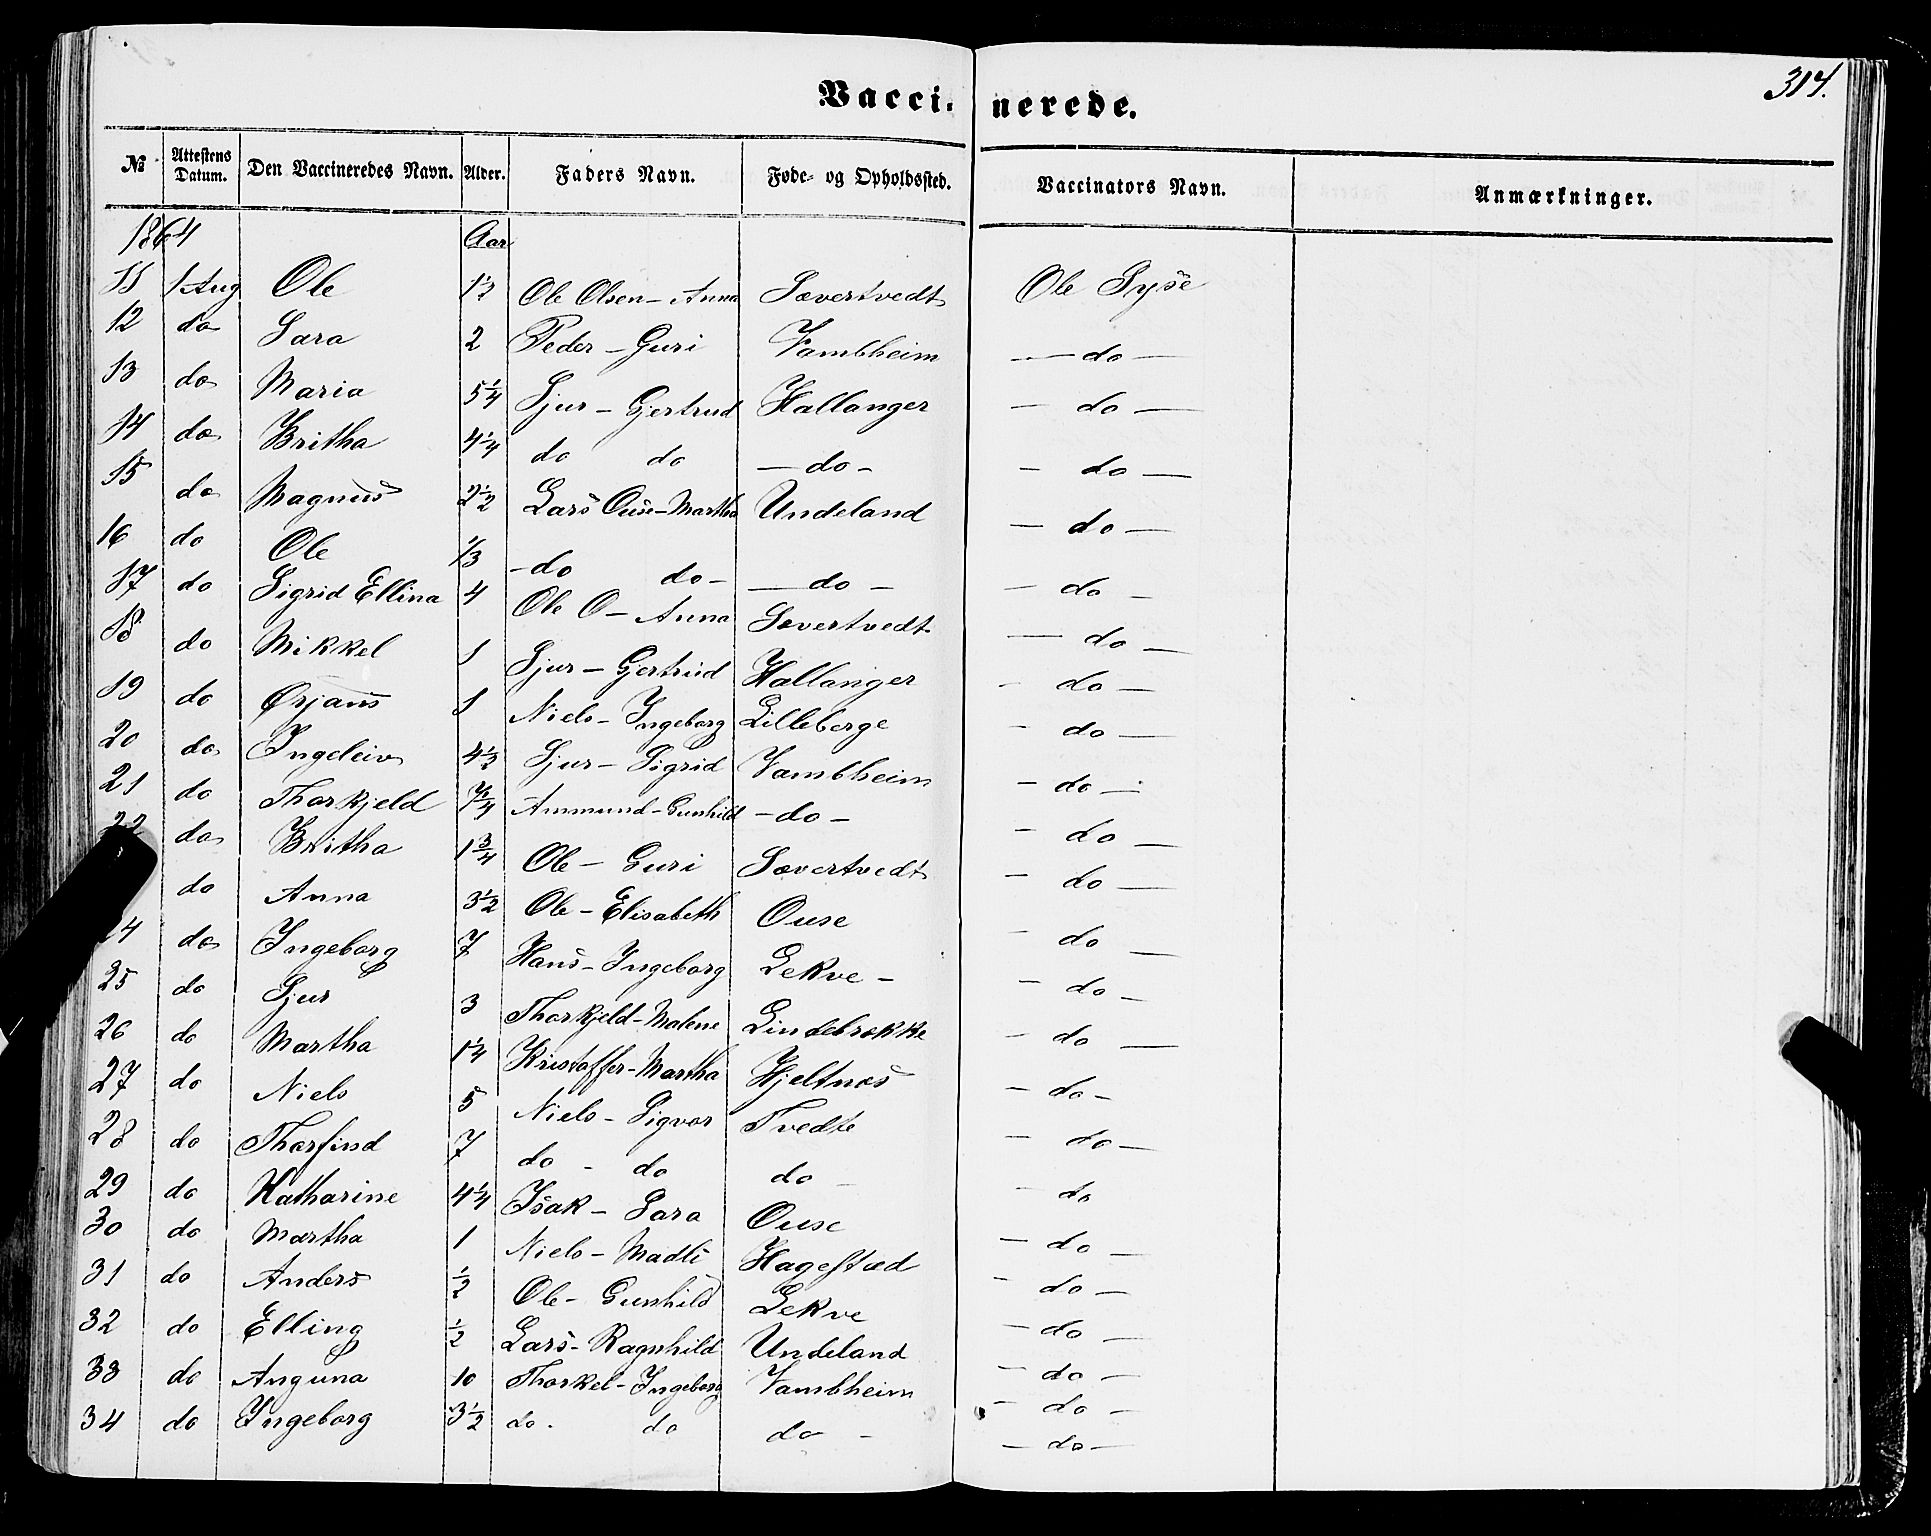 314.
Vaccinerede.
№ Attestens Datum. Den Vaccineredes Navn. Alder. Faders Navn. Føde- og Opholdssted. Vaccinators Navn. Anmærkninger.
1864 Aar
11 1 Aug Ole 1½ Ole Olsen - Anna Sævertvedt Ole Syse
12 do Sara 2 Peder - Guri Vambheim - do -
13 do Maria 5¼ Sjur - Gjertrud Hallanger - do -
14 do Britha 4¼ do do - do - - do -
15 do Magnus 2½ Lars Ouse - Martha Undeland - do -
16 do Ole ⅓ - do do - - do - - do -
17 do Sigrid Ellina 4 Ole O - Anna Sævertvedt - do -
18 do Mikkel 1 Sjur - Gjertrud Hallanger - do -
19 do Ørjans 1 Niels - Ingeborg Lilleberge - do -
20 do Ingeleiv 4½ Sjur - Sigrid Vambheim - do -
21 do Thorkjeld Ammund - Gunhild - do - - do -
22 do Britha 1¾ Ole - Guri Sævertvedt - do -
do Anna 3½ Ole - Elisabeth Ouse - do -
24 do Ingeborg 7 Hans - Ingeborg Lekve - - do -
25 do Sjur 3 Thorkjeld - Malene Lindebrække - do -
26 do Martha 1¼ Kristoffer - Martha Hjeltnes - do -
27 do Niels 5 Niels - Sigvor Tvedte - do -
28 do Thorfind 7 do - do do - - do -
29 do Katharine 4¼ Isak - Sara Ouse - do
30 do Martha 1 Niels - Madli Hagestad - do -
31 do Anders ½ Ole - Gunhild Lekve - do -
32 do Elling ½ Lars - Ragnhild Undeland - do -
33 do Anguna 10 Thorkel - Ingeborg Vambheim - do -
34 do Ingeborg 3½ do - do do - - do -
- do -